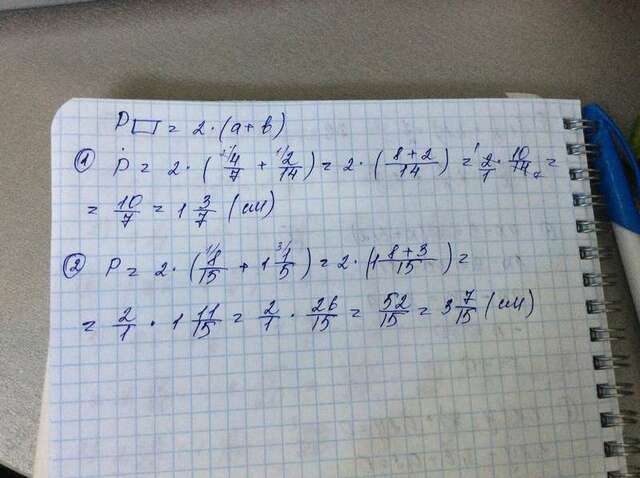 P▭ = 2·(a+b)
① P = 2·(²⁾4/7 + ¹⁾2/14) = 2·(8+2/14) = ¹2/1 · 10/14₇ =
= 10/7 = 1 3/7 (см)
② P = 2·(¹⁾8/15 + 1 ³⁾1/5) = 2·(1 8+3/15) =
= 2/1 · 1 11/15 = 2/1 · 26/15 = 52/15 = 3 7/15 (см)